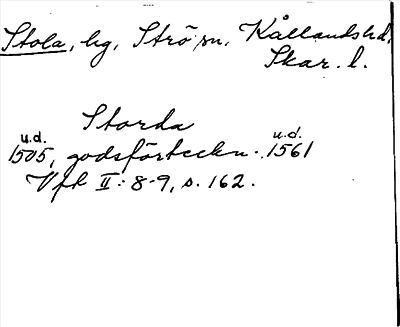 Stola, hg, Strö sn, Kållandshd,
Skar. l.
Storda
u.d. 1505, godsförteckn. u.d. 1561
Vft II: 8-9, s. 162.